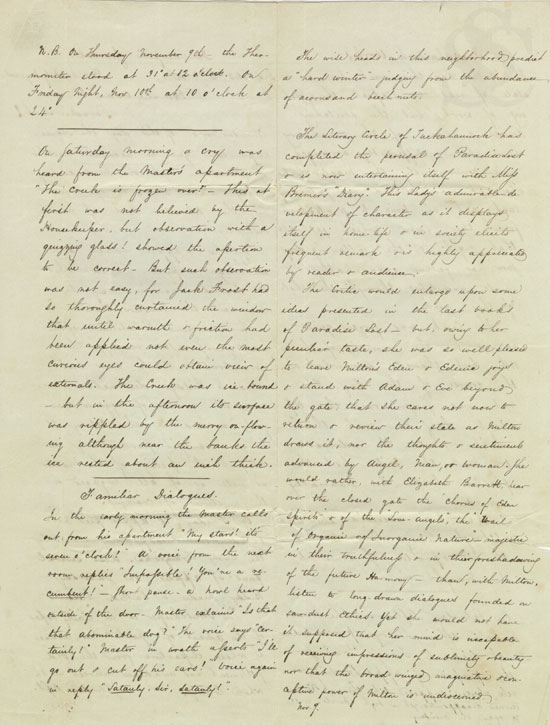 N.B. On Thursday November 9th - the Ther-
mometer stood at 31° at 12 o'clock. On
Friday Night, Nov. 10th at 10 o'clock at
24°
On Saturday morning a cry was
heard from the Master's apartment
"The Creek is frozen over!" - This at
first was not believed by the
Housekeeper, but observation with a
quizzing glass! showed the assertion
to be correct - But such observation
was not easy, for Jack Frost had
so thoroughly curtained the window
that until warmth & friction had
been applied not even the most
curious eyes could obtain view of
externals. The Creek was ice-bound
- but in the afternoon its surface
was rippled by the merry on-flow-
ing although near the banks the
ice rested about an inch thick.
Familiar Dialogues.
In the early morning the Master calls
out from his apartment "My stars! it's
seven o'clock!" A voice from the next
room replies "Impossible! You're a
cumbent!" - Short pause - a howl heard
outside of the door - Master exclaims "Is that
that abominable dog?" The voice says "Cer-
tainly!" Master in wrath asserts "I'll
go out & cut off his ears! Voice again
in reply "Sartainly, Sir, sartainly!".
The wise heads in this neighborhood predict
a "hard winter" judging from the abundance
of acorns and beech nuts.
The Literary Circle of Tuckahannock has
completed the perusal of Paradise Lost
& is now entertaining itself with Miss
Bremer's "Diary". This Lady's admirable de-
velopment of character as it displays
itself in home-life & in society elicits
frequent remark & is highly appreciated
by reader & audience.
The Critic would enlarge upon some
ideas presented in the last books
of Paradise Lost - but, owing to her
peculiar taste, she was so well pleased
to leave Milton's Eden & Edenic joys
& stand with Adam & Eve beyond
the gate, that she cares not now to
return & review their state as Milton
draws it, nor the thoughts & sentiments
advanced by Angel, Man, or woman. She
would rather, with Elizabeth Barrett, hear
over the closed gate the chorus of Eden
spirits & of the "Love Angels", the Wail
of Organic & of Inorganic Nature - majestic
in their truthfulness & in their foreshadowing
of the future Harmony - than, with Milton,
listen to long drawn dialogues founded in
sawdust Ethics. Yet she would not have
it supposed that her mind is incapable
of receiving impressions of sublimity & beauty
nor that the broad winged imaginative
power of Milton is undiscerned.